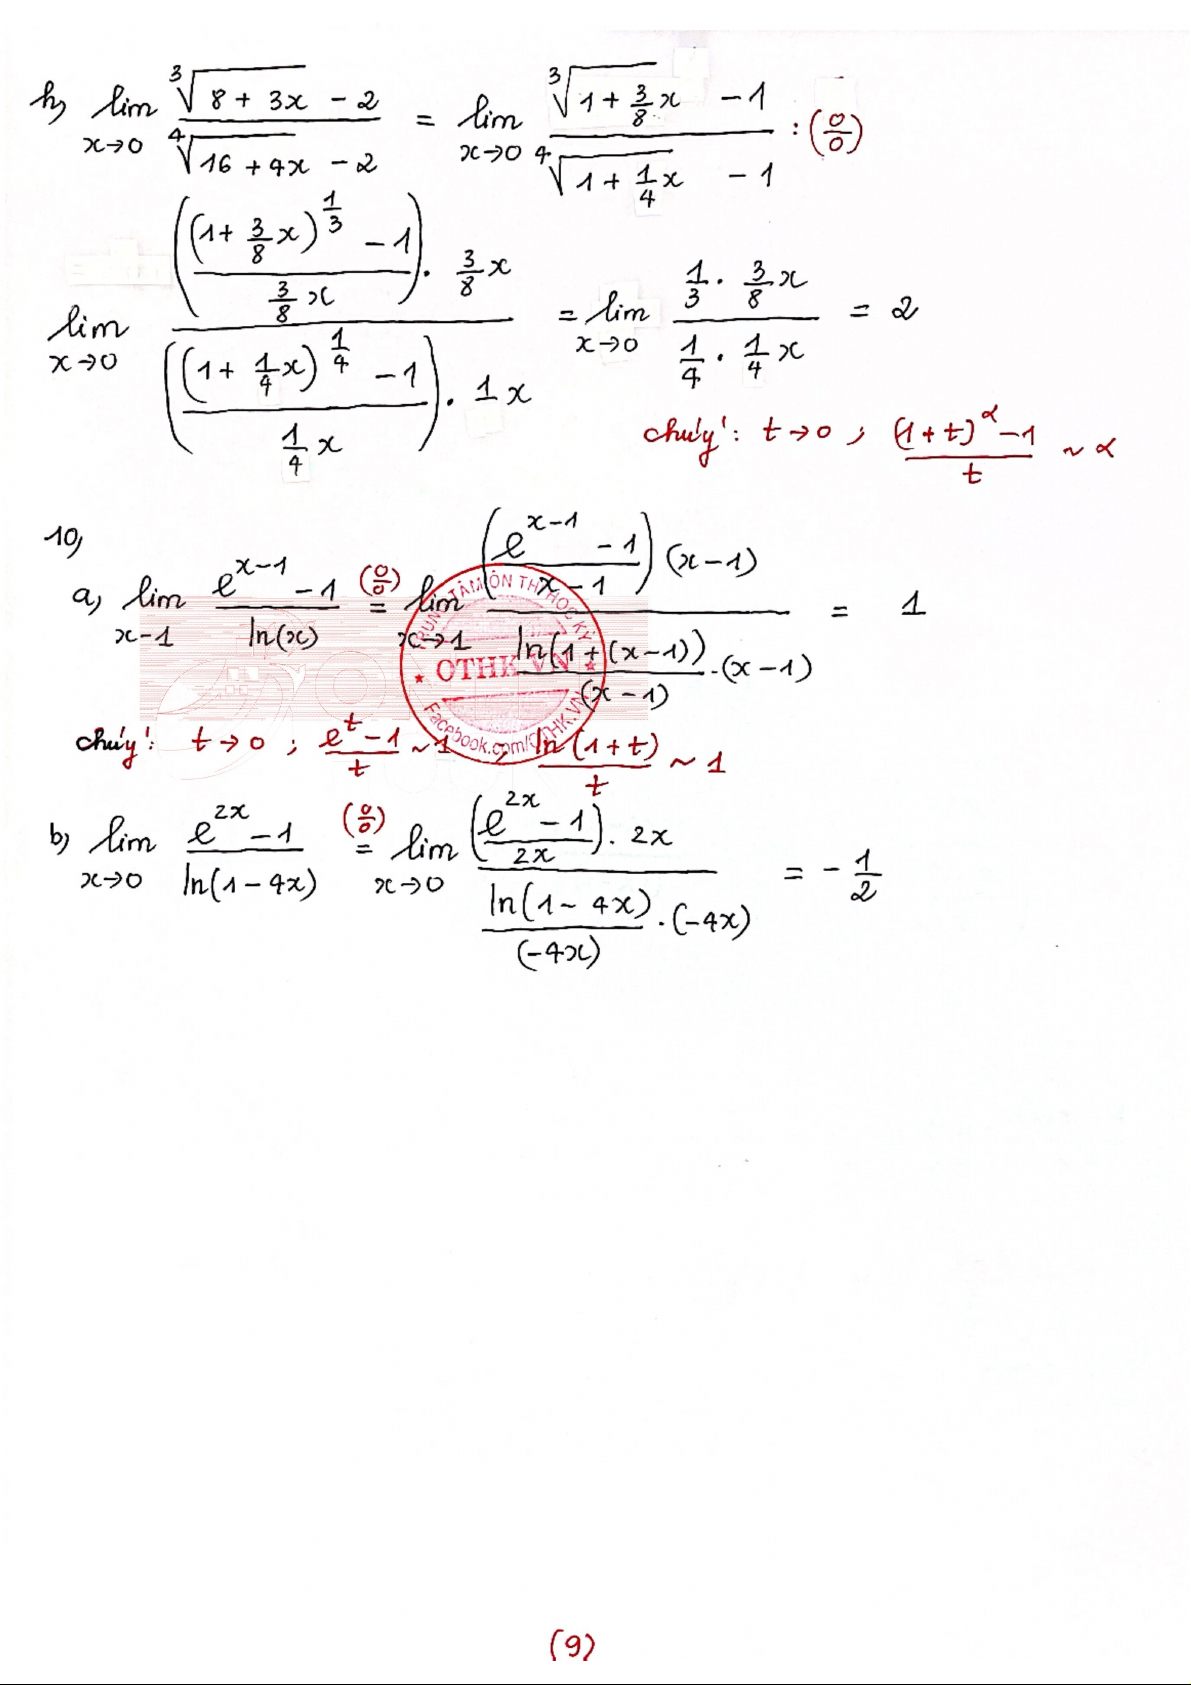 h) lim x→0 (∛(8 + 3x) - 2) / (∜(16 + 4x) - 2) = lim x→0 (∛(1 + 3/8 x) - 1) / (∜(1 + 1/4 x) - 1) : (0/0)
lim x→0 [(((1 + 3/8 x)^(1/3) - 1) / (3/8 x)) . 3/8 x] / [(((1 + 1/4 x)^(1/4) - 1) / (1/4 x)) . 1 x] = lim x→0 (1/3 . 3/8 x) / (1/4 . 1/4 x) = 2
chú ý: t→0 ; ((1 + t)^α - 1) / t ~ α
10,
a, lim x-1 (e^(x-1) - 1) / ln(x) (0/0) = lim x→1 [((e^(x-1) - 1) / (x - 1)) (x - 1)] / [(ln(1 + (x - 1)) / (x - 1)) . (x - 1)] = 1
TRUNG TÂM ÔN THI HỌC KỲ
OTHK.VN
Facebook.com/OTHK.VN
chú ý: t→0 ; (e^t - 1) / t ~ 1 , ln(1 + t) / t ~ 1
b) lim x→0 (e^(2x) - 1) / ln(1 - 4x) (0/0) = lim x→0 [((e^(2x) - 1) / 2x) . 2x] / [(ln(1 - 4x) / (-4x)) . (-4x)] = - 1/2
(9)